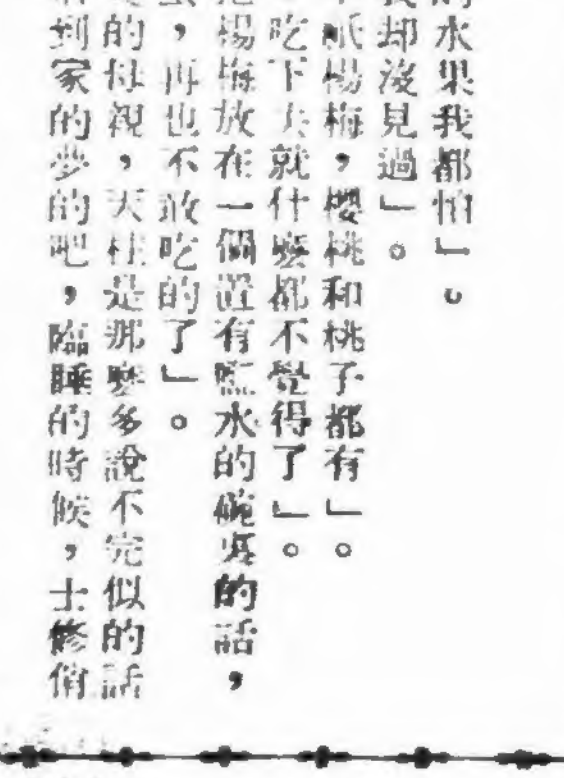 水果我都怕」。
却沒見過」。
楊梅，櫻桃和桃子都有」。
吃下去就什麼都不覺得了」。
楊梅放在一個置有鹽水的碗裏的話，
，再也不敢吃的了」。
的母親，天柱是那麼多說不完似的話
到家的夢的吧，臨睡的時候，士修俏